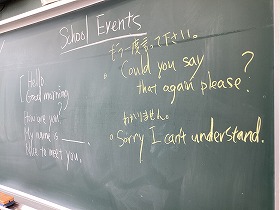 School Events
Hello
Good morning
How are you?
My name is
Nice to meet you.
もう一度言って下さい。
Could you say
that again please?
わかりません。
Sorry I can't understand.